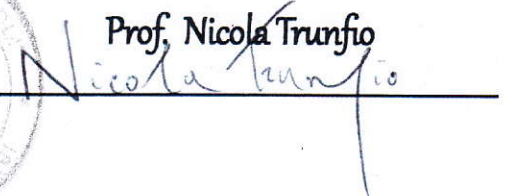 Prof. Nicola Trunfio
Nicola Trunfio